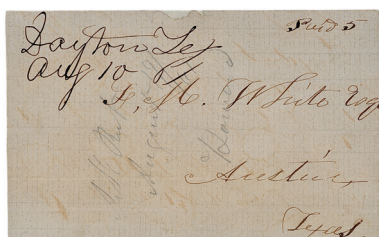 Dayton Tex
Aug 10 61
Paid 5
F. M. White Esq
Austin,
Texas